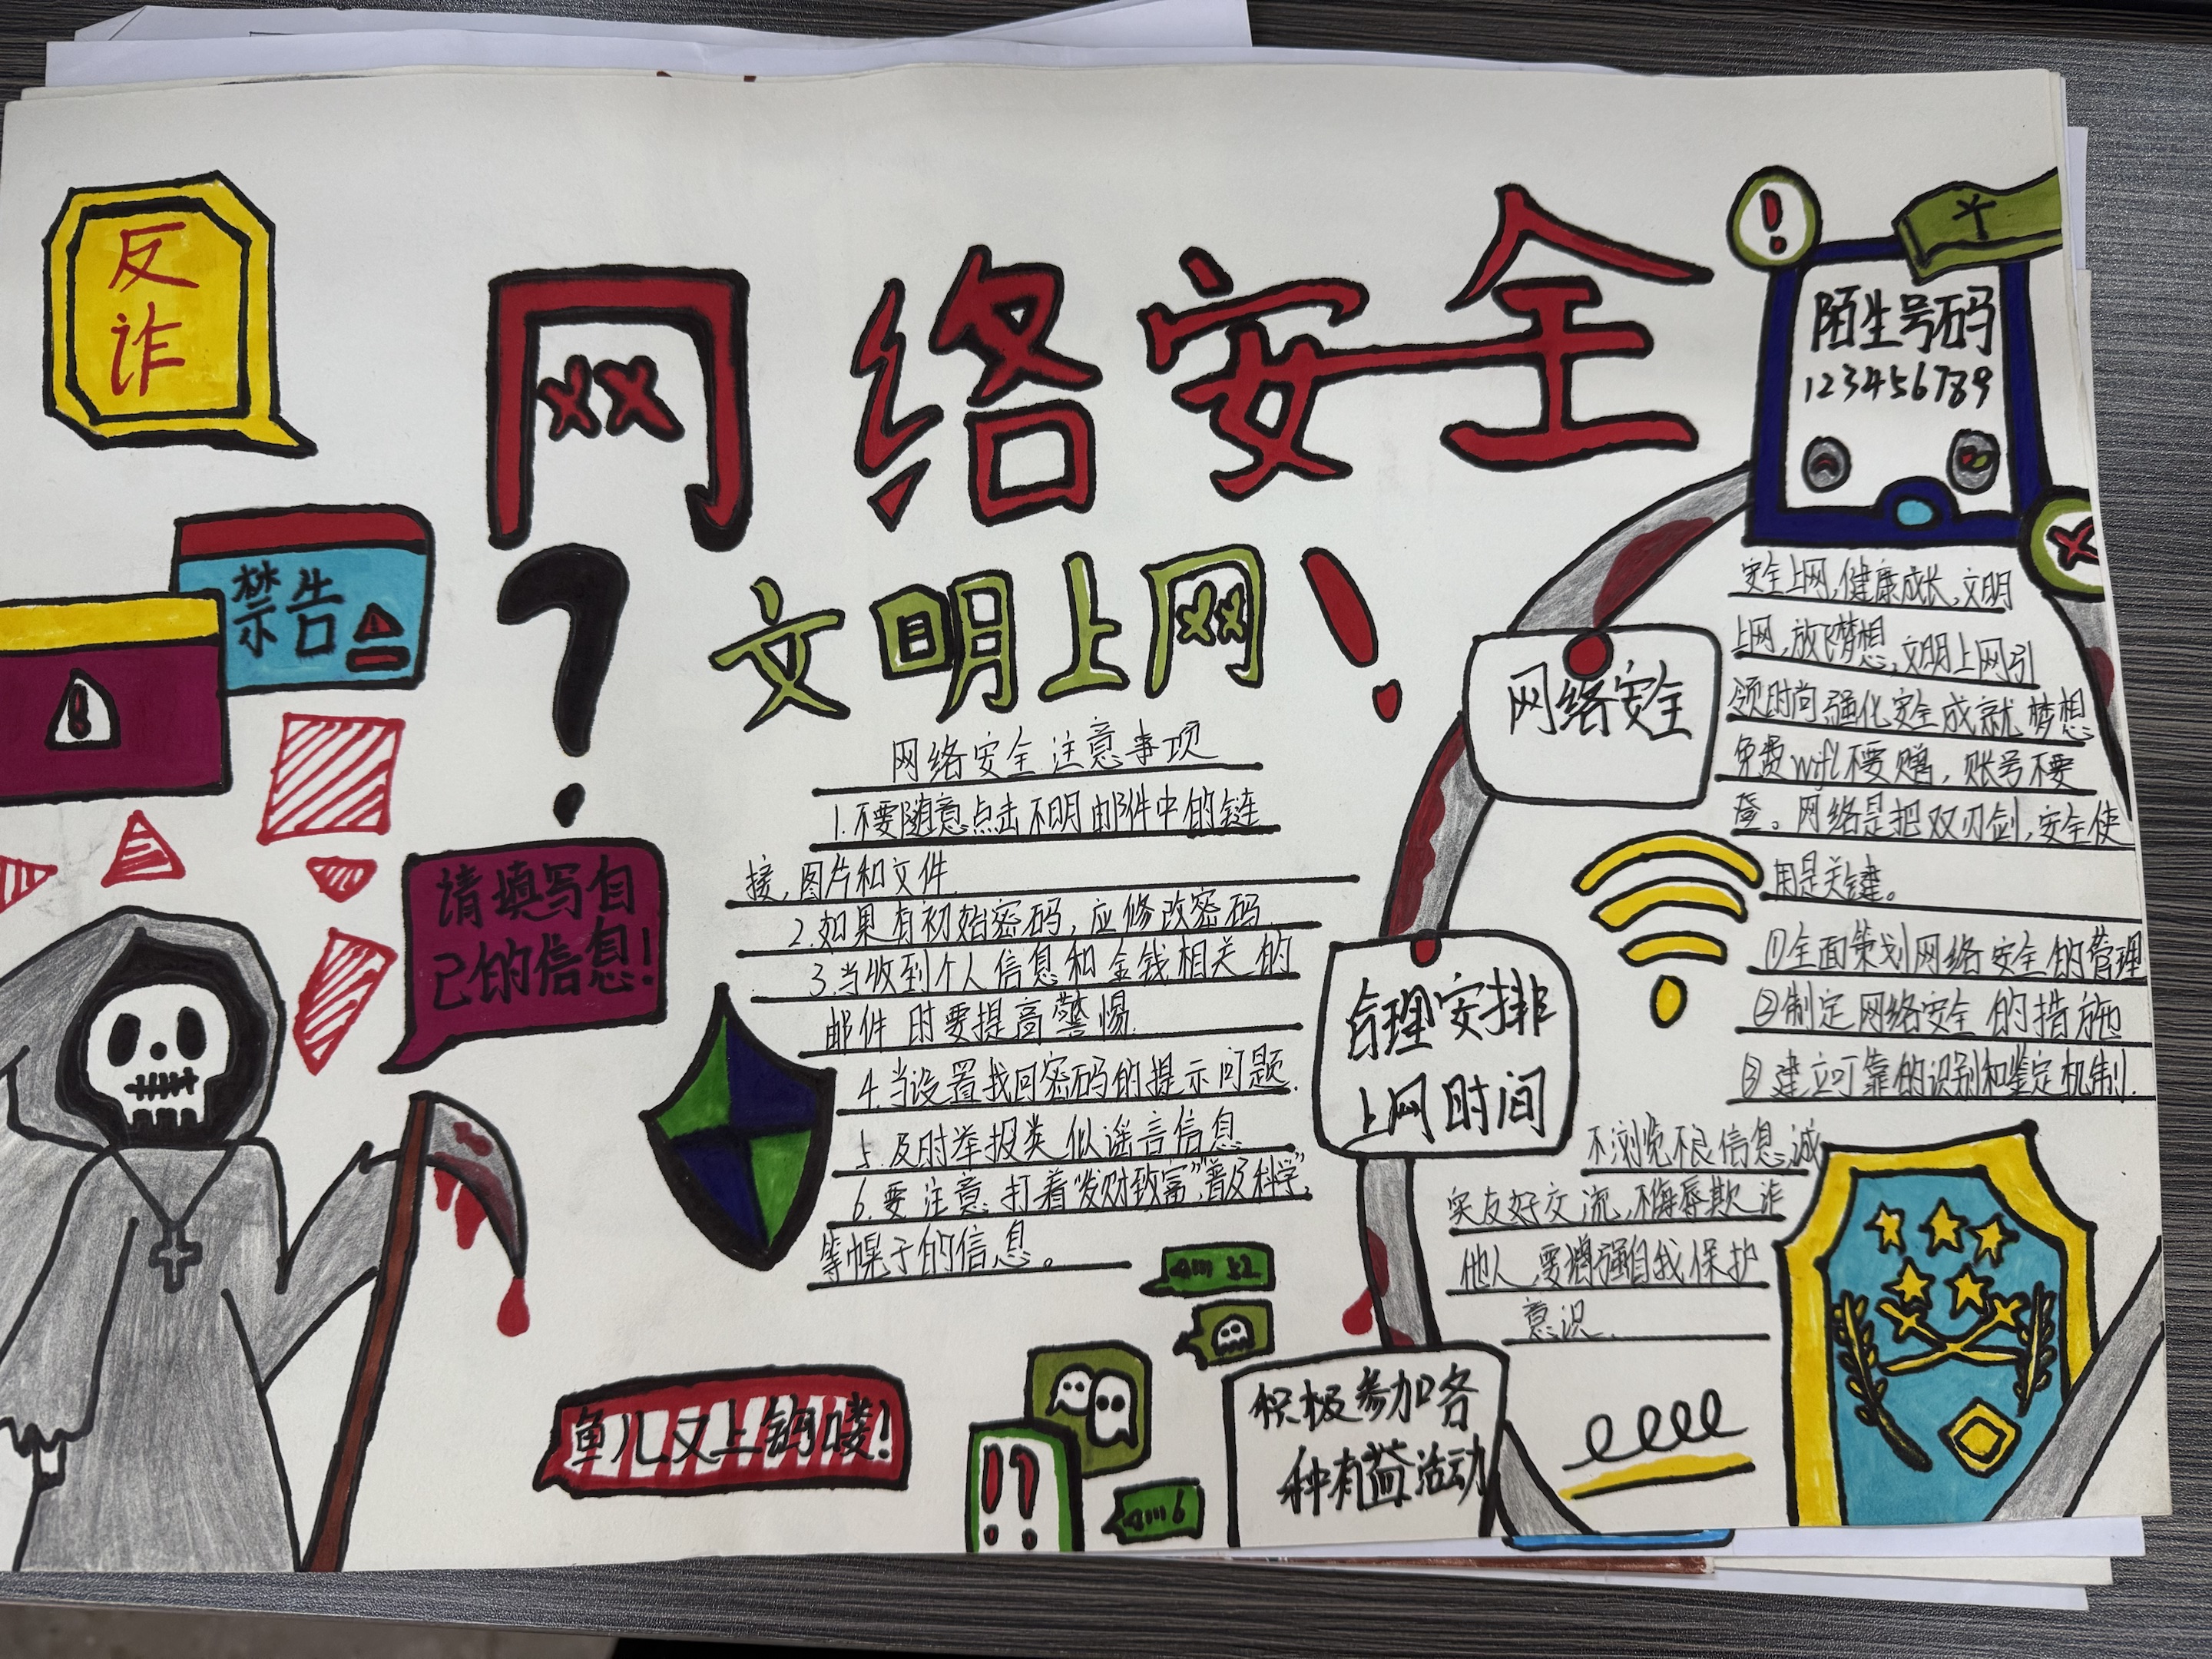 反
诈
网络安全
?
文明上网!
禁告
!
请填写自
己的信息!
网络安全注意事项
1.不要随意点击不明邮件中的链
接,图片和文件.
2.如果有初始密码,应修改密码
3.当收到个人信息和金钱相关的
邮件时要提高警惕.
4.当设置找回密码的提示问题.
5.及时举报类似谣言信息
6.要注意.打着“发财致富”,“普及科学”,
等幌子的信息。
鱼儿又上钩喽!
52
!?
6
!
陌生号码
123456789
网络安全
合理安排
上网时间
积极参加各
种有益活动
安全上网,健康成长,文明
上网,放飞梦想,文明上网引
领时尚强化安全成就梦想
免费wifi不要蹭,账号不要
登。网络是把双刃剑,安全使
用是关键。
①全面策划网络安全的管理
②制定网络安全的措施
③建立可靠的识别和鉴定机制.
不浏览不良信息,诚
实友好交流,不侮辱欺诈
他人,要增强自我保护
意识.